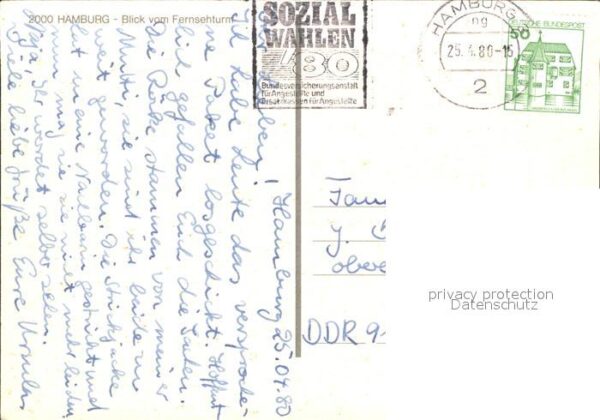 2000 HAMBURG - Blick vom Fernsehturm
SOZIAL
WAHLEN
'80
Bundesversicherungsanstalt
für Angestellte und
Ersatzkassen für Angestellte
HAMBURG
25.4.80-15
2
DEUTSCHE BUNDESPOST
50
Hamburg 25.04.80
Ihr Lieben!
Ich habe heute das versproche-
ne Paket losgeschickt. Hoffent-
lich gefallen Euch die Sachen.
Die Röcke stammen von meiner
Mutti, sie sind ihr beide zu
weit geworden. Die Strickjacke
hat meine Nachbarin gestrickt und
nun mag sie sie nicht mehr leiden.
Naja, Ihr werdet selber sehen.
Viele liebe Grüße Eure Ursula
Fam
ober
DDR 9
privacy protection
Datenschutz